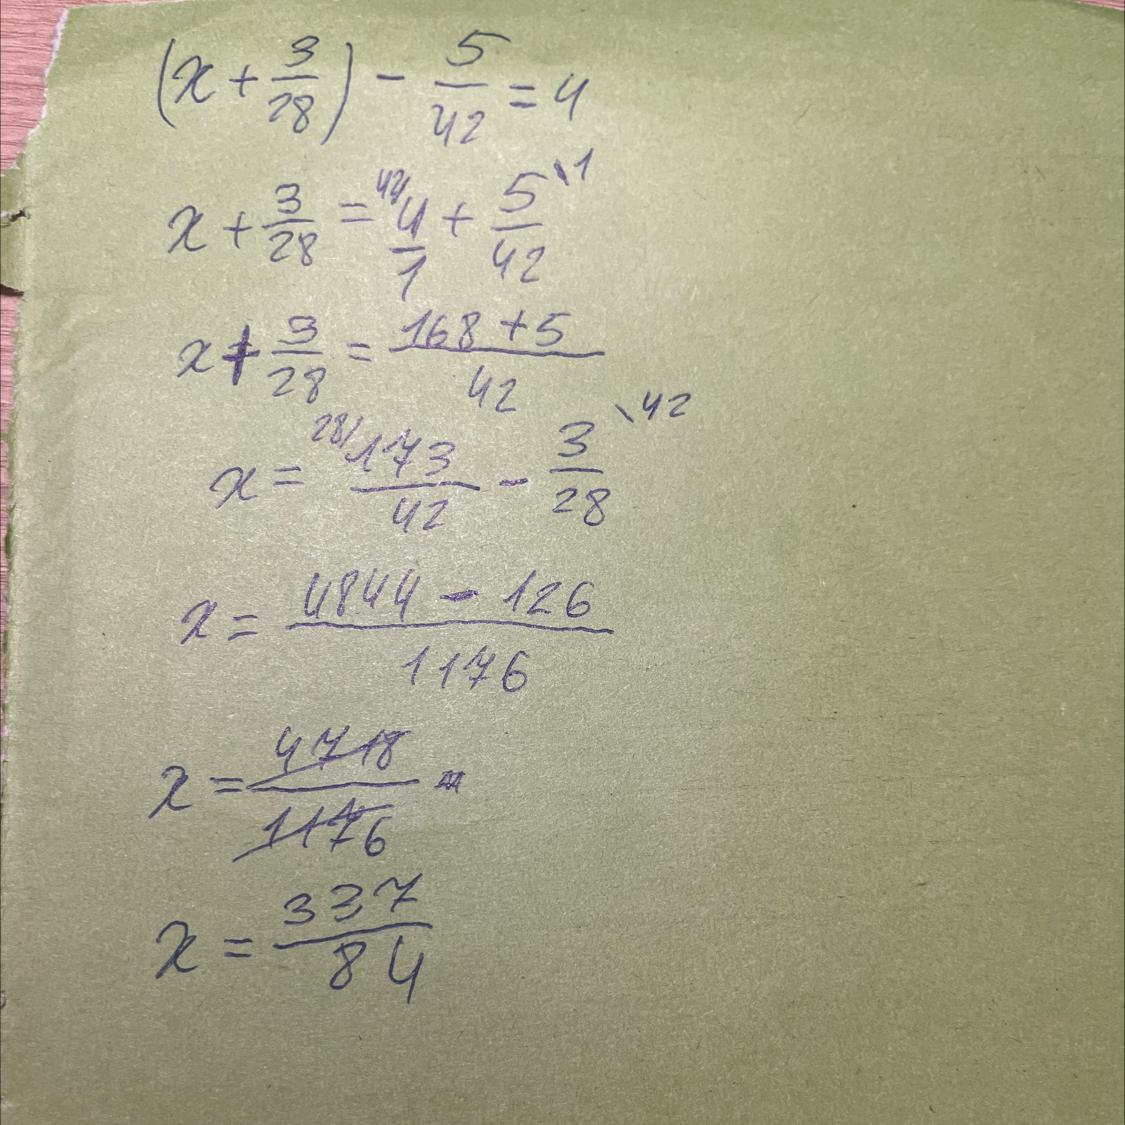 (x + 3/28) - 5/42 = 4
x + 3/28 = 42/ 4/1 + 5/42 \1
x + 3/28 = (168 + 5)/42
x = 28/ 173/42 - 3/28 \42
x = (4844 - 126)/1176
x = 4718/1176 =
x = 337/84